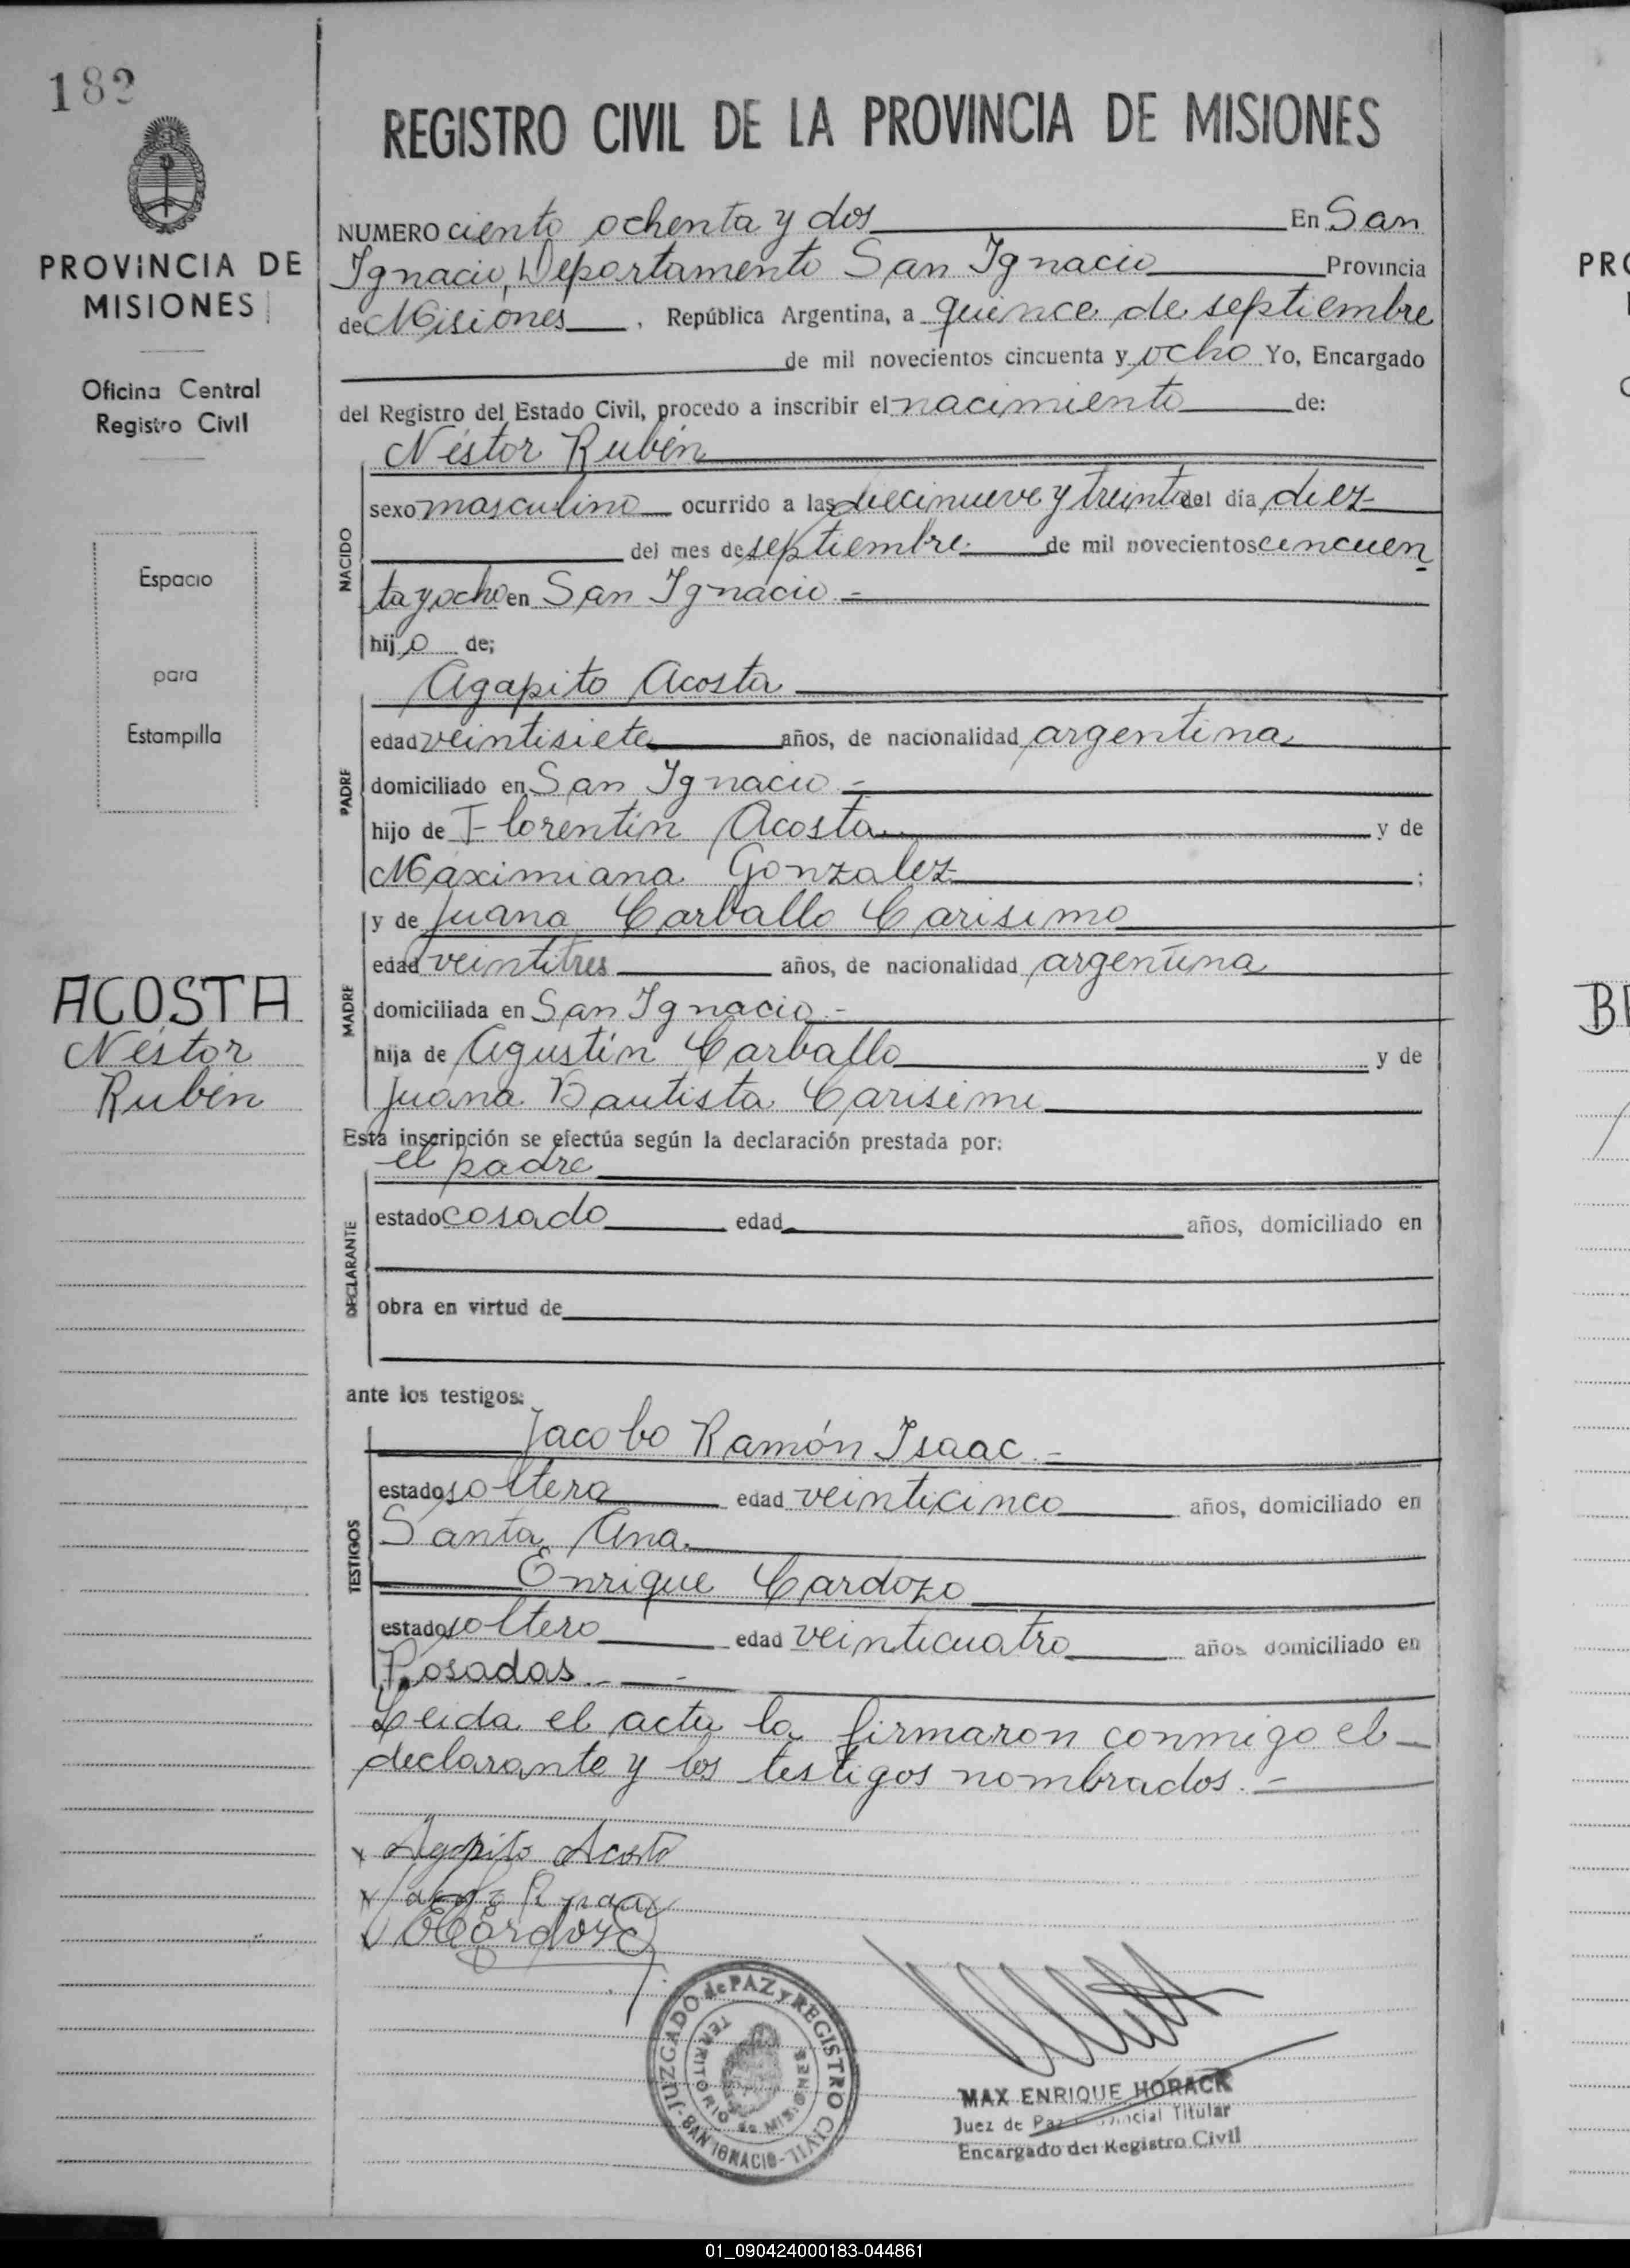 182
PROVINCIA DE
MISIONES
Oficina Central
Registro Civil
Espacio
para
Estampilla
ACOSTA
Néstor
Rubén
REGISTRO CIVIL DE LA PROVINCIA DE MISIONES
NUMERO ciento ochenta y dos En San
Ignacio, Departamento San Ignacio Provincia
de Misiones, República Argentina, a quince de septiembre
de mil novecientos cincuenta y ocho Yo, Encargado
del Registro del Estado Civil, procedo a inscribir el nacimiento de:
Néstor Rubén
NACIDO
sexo masculino ocurrido a las diecinueve y treinta del día diez
del mes de septiembre de mil novecientos cincuen
ta y ocho en San Ignacio.-
hijo de;
Agapito Acosta
PADRE
edad veintisiete años, de nacionalidad argentina
domiciliado en San Ignacio.-
hijo de Florentín Acosta y de
Maximiana Gonzalez;
MADRE
y de Juana Carballo Carisimo
edad veintitres años, de nacionalidad argentina
domiciliada en San Ignacio.-
hija de Agustín Carballo y de
Juana Bautista Carisimi
Esta inscripción se efectúa según la declaración prestada por:
el padre
DECLARANTE
estado casado edad años, domiciliado en
obra en virtud de
ante los testigos:
Jacobo Ramón Isaac.-
TESTIGOS
estado soltero edad veinticinco años, domiciliado en
Santa Ana.
Enrique Cardozo
estado soltero edad veinticuatro años domiciliado en
Posadas.-
Leida el acta la firmaron conmigo el
declarante y los testigos nombrados.-
x Agapito Acosta
ECardozo
JUZGADO de PAZ y REGISTRO CIVIL - SAN IGNACIO -
TERRITORIO de MISIONES
MAX ENRIQUE HORACK
Juez de Paz Provincial Titular
Encargado del Registro Civil
PRO
BE
01_090424000183-044861